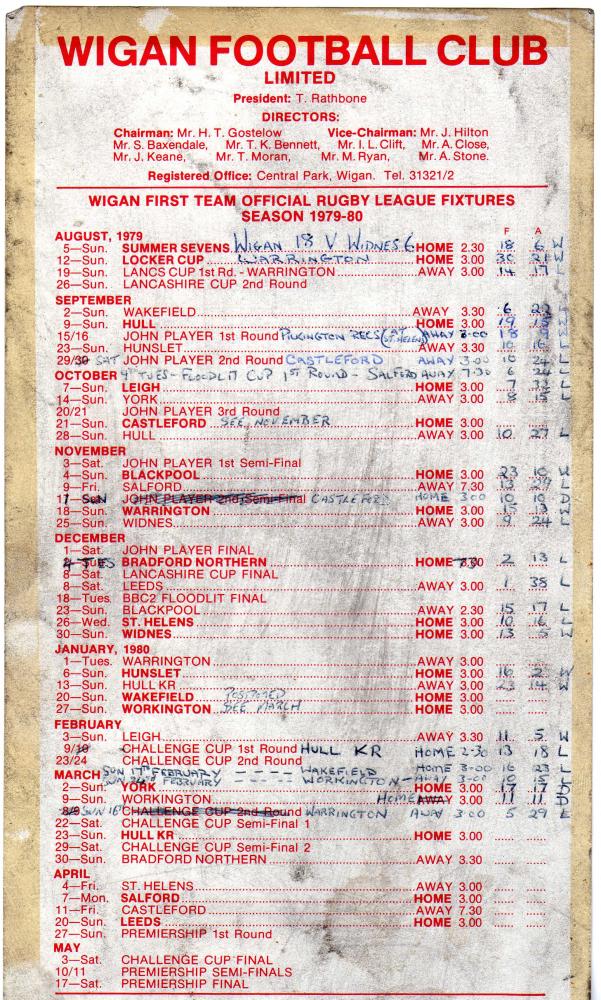 WIGAN FOOTBALL CLUB
LIMITED
President: T. Rathbone
DIRECTORS:
Chairman: Mr. H. T. Gostelow Vice-Chairman: Mr. J. Hilton
Mr. S. Baxendale, Mr. T. K. Bennett, Mr. I. L. Clift, Mr. A. Close,
Mr. J. Keane, Mr. T. Moran, Mr. M. Ryan, Mr. A. Stone.
Registered Office: Central Park, Wigan. Tel. 31321/2
WIGAN FIRST TEAM OFFICIAL RUGBY LEAGUE FIXTURES
SEASON 1979-80
AUGUST, 1979 F A
5—Sun. SUMMER SEVENS WIGAN 18 V WIDNES 6 HOME 2.30 18 6 W
12—Sun. LOCKER CUP WARRINGTON HOME 3.00 30 21 W
19—Sun. LANCS CUP 1st Rd. - WARRINGTON AWAY 3.00 14 17 L
26—Sun. LANCASHIRE CUP 2nd Round
SEPTEMBER
2—Sun. WAKEFIELD AWAY 3.30 6
9—Sun. HULL HOME 3.00 19 15
15/16 JOHN PLAYER 1st Round PILKINGTON RECS (AT ST. HELENS) AWAY 3-00 18
23—Sun. HUNSLET AWAY 3.30 10 16 L
29/30 SAT JOHN PLAYER 2nd Round CASTLEFORD AWAY 3-00 10 24 L
OCTOBER 9th TUES - FLOODLIT CUP 1ST ROUND - SALFORD AWAY 7-30 6 24 L
7—Sun. LEIGH HOME 3.00 7 32 L
14—Sun. YORK AWAY 3.00 8 15 L
20/21 JOHN PLAYER 3rd Round
21—Sun. CASTLEFORD SEE NOVEMBER HOME 3.00
28—Sun. HULL AWAY 3.00 10 27 L
NOVEMBER
3—Sat. JOHN PLAYER 1st Semi-Final
4—Sun. BLACKPOOL HOME 3.00 23 10 W
9—Fri. SALFORD AWAY 7.30 13 29 L
SUN JOHN PLAYER 2nd Semi-Final CASTLEFORD HOME 3-00 10 10 D
18—Sun. WARRINGTON HOME 3.00 15 13 W
25—Sun. WIDNES AWAY 3.00 9 24 L
DECEMBER
1—Sat. JOHN PLAYER FINAL
4 TUES BRADFORD NORTHERN HOME 7.30 2 13 L
8—Sat. LANCASHIRE CUP FINAL
8—Sun. LEEDS AWAY 3.00 1 38 L
18—Tues. BBC2 FLOODLIT FINAL
23—Sun. BLACKPOOL AWAY 2.30 15 17 L
26—Wed. ST. HELENS HOME 3.00 10 16 L
30—Sun. WIDNES HOME 3.00 13 5 W
JANUARY, 1980
1—Tues. WARRINGTON AWAY 3.00
6—Sun. HUNSLET HOME 3.00 16 2 W
13—Sun. HULL KR AWAY 3.00 23 14 W
20—Sun. WAKEFIELD POSTPONED HOME 3.00
27—Sun. WORKINGTON SEE MARCH HOME 3.00
FEBRUARY
3—Sun. LEIGH AWAY 3.30 11 5 W
9/10 CHALLENGE CUP 1st Round HULL KR HOME 2-30 13 18 L
23/24 CHALLENGE CUP 2nd Round
SUN 17TH FEBRUARY ---- WAKEFIELD HOME 3-00 16 23 L
MARCH SUN 24TH FEBRUARY ---- WORKINGTON - AWAY 3-00 10 15 L
2—Sun. YORK HOME 3.00 17 17 D
9—Sun. WORKINGTON HOME AWAY 3.00 11 11 D
8/9 SUN 16TH CHALLENGE CUP 2nd Round WARRINGTON AWAY 3.00 5 29 L
22—Sat. CHALLENGE CUP Semi-Final 1
23—Sun. HULL KR HOME 3.00
29—Sat. CHALLENGE CUP Semi-Final 2
30—Sun. BRADFORD NORTHERN AWAY 3.30
APRIL
4—Fri. ST. HELENS AWAY 3.00
7—Mon. SALFORD HOME 3.00
11—Fri. CASTLEFORD AWAY 7.30
20—Sun. LEEDS HOME 3.00
27—Sun. PREMIERSHIP 1st Round
MAY
3—Sat. CHALLENGE CUP FINAL
10/11 PREMIERSHIP SEMI-FINALS
17—Sat. PREMIERSHIP FINAL